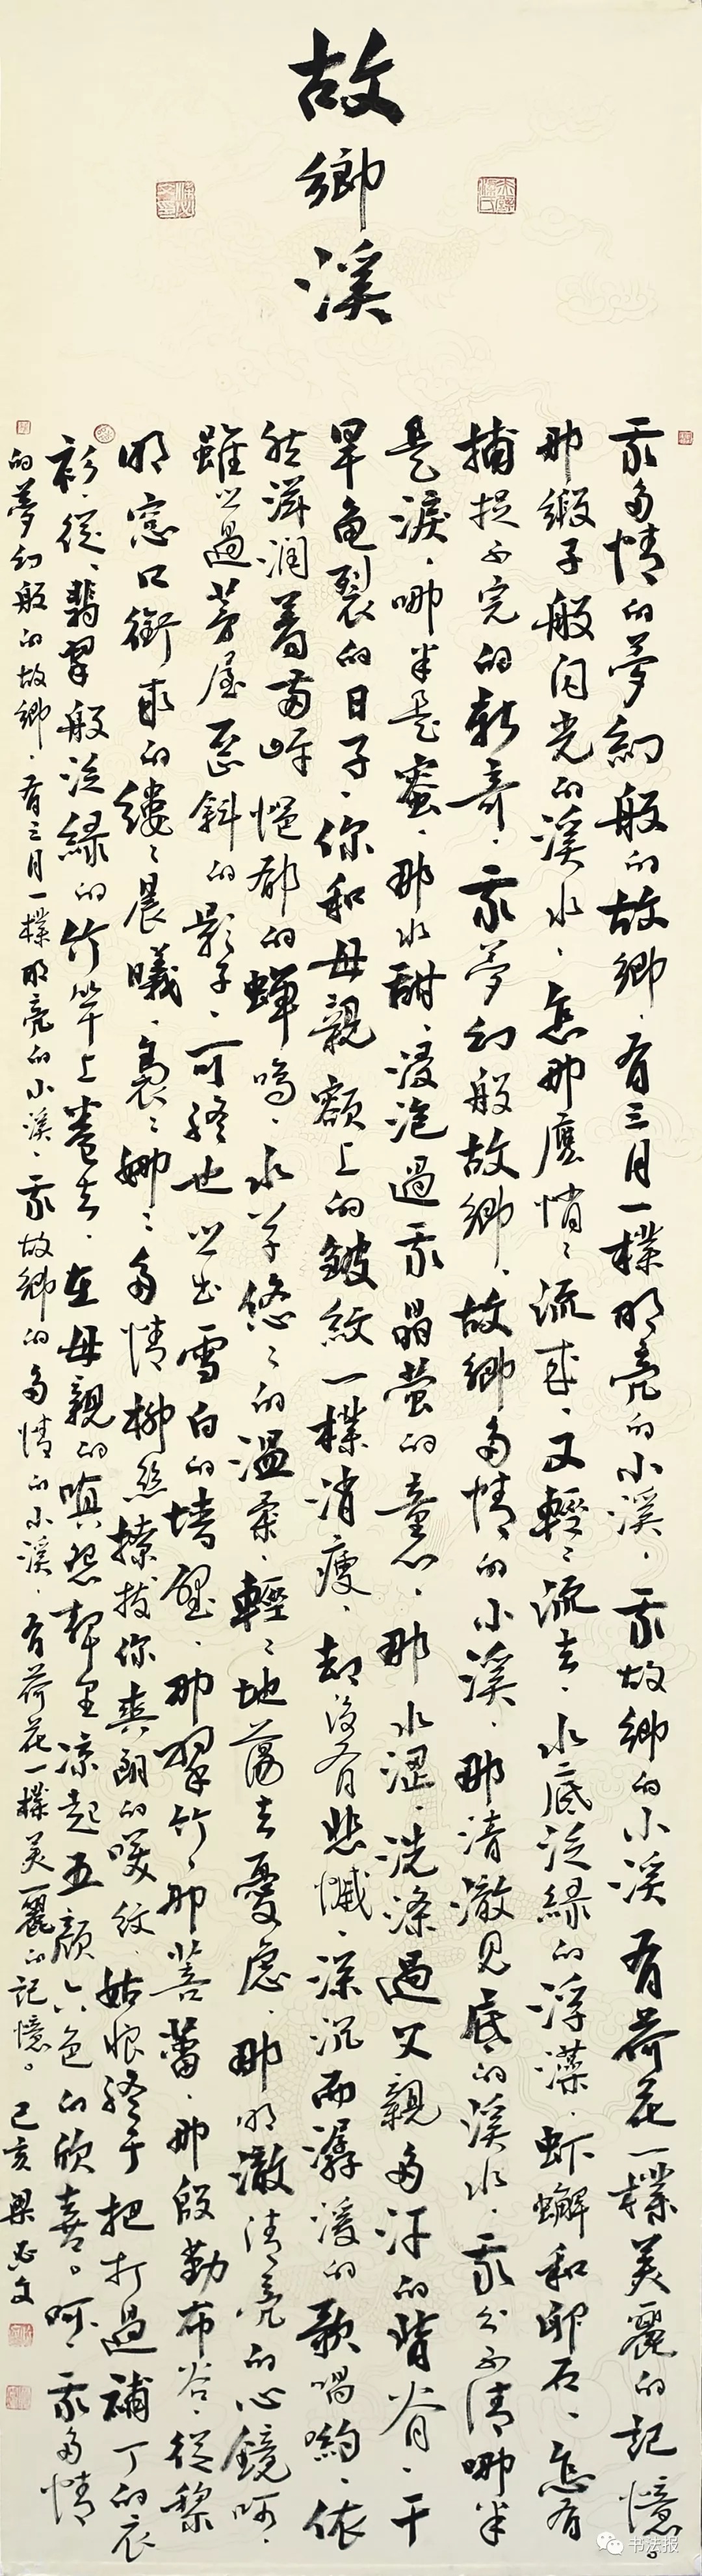 故鄉溪
我多情的夢幻般的故鄉、有三月一樣明亮的小溪、我故鄉的小溪有荷花一樣美麗的記憶。
那緞子般闪光的溪水、怎那麼悄〻流來、又輕〻流去、水底泛緑的浮藻、虾蟹和卵石、怎有
捕捉不完的新奇、我夢幻般故鄉、故鄉多情的小溪、那清澈見底的溪水、我分不清哪半
是淚、哪半是蜜、那水甜、浸泡過我晶莹的童心、那水澀、洗滌過父親多汗的背脊、干
旱龟裂的日子、你和母親額上的皱紋一樣消瘦、却没有悲憾、深沉而潺湲的歌唱喲、依
然滋润着两岸悒郁的蝉鳴、水草悠〻的温柔、輕〻地蕩去憂慮、那明澈清亮的心鏡呵、
雖照過茅屋歪斜的影子、可終也照出雪白的墙壁、那翠竹、那蓓蕾、那殷勤布谷、從黎
明窓口銜來的縷〻晨曦、裊〻娜〻多情柳絲撩拨你爽朗的笑紋、姑娘終于把打過補丁的衣
衫、從翡翠般泛緑的竹竿上卷去、在母親的嗔怨聲里凉起五顔六色的欣喜。呵、我多情
的夢幻般的故鄉、有三月一樣明亮的小溪、我故鄉的多情的小溪、有荷花一樣美麗的記憶。己亥梁文
书法报